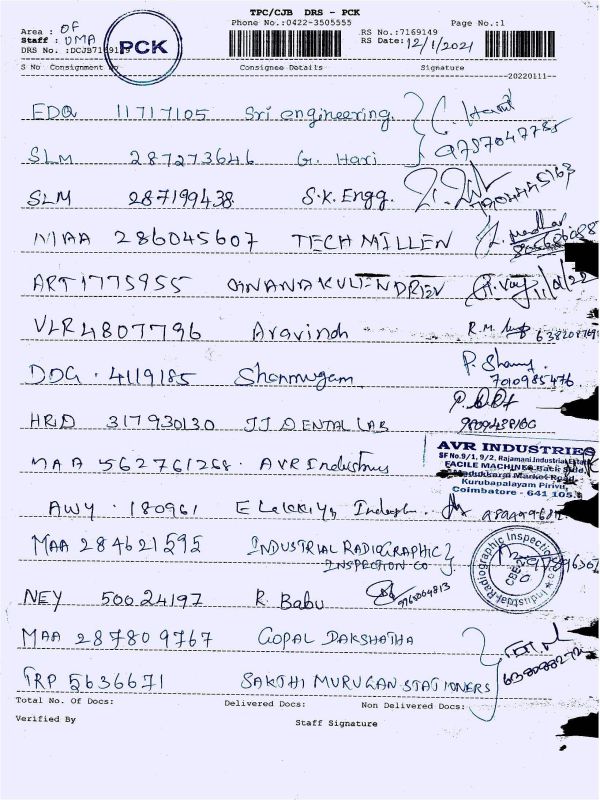 TPC/CJB DRS - PCK
Phone No.:0422-3505555 Page No.:1
Area : OF
Staff : UMA
DRS No. :DCJB7169149
PCK
RS No.:7169149
RS Date: 12/1/2021
S No Consignment No Consignee Details Signature
20220111
EDQ 11717105 Sri engineering. C. Hari
9787047785
SLM 287273646 G. Hari
SLM 287199438 S.K. Engg.
MAA 286045607 TECH MILLEN
ART 1775955
VLR 4807796 Aravindh R.M.
DDG . 4119185 Shanmugam P.
7010985476
HRD 317930130 JJ DENTAL LAB
AVR INDUSTRIES
SF No.9/1, 9/2, Rajamani Industrial Estate
FACILE MACHINES Back Side
Madukkarai Market Road
Kurubapalayam Pirivu,
Coimbatore - 641 105.
MAA 562761268 . AVR Industries
AWY . 180961
MAA 284621595 INDUSTRIAL RADIOGRAPHIC
INSPECTION CO
Industrial Radiographic Inspection
CBE-21
NEY 500 24197 R. Babu
MAA 287809767 GOPAL DAKSHATHA
TRP 5636671 SAKTHI MURUGAN STATIONERS
Total No. Of Docs: Delivered Docs: Non Delivered Docs:
Verified By Staff Signature